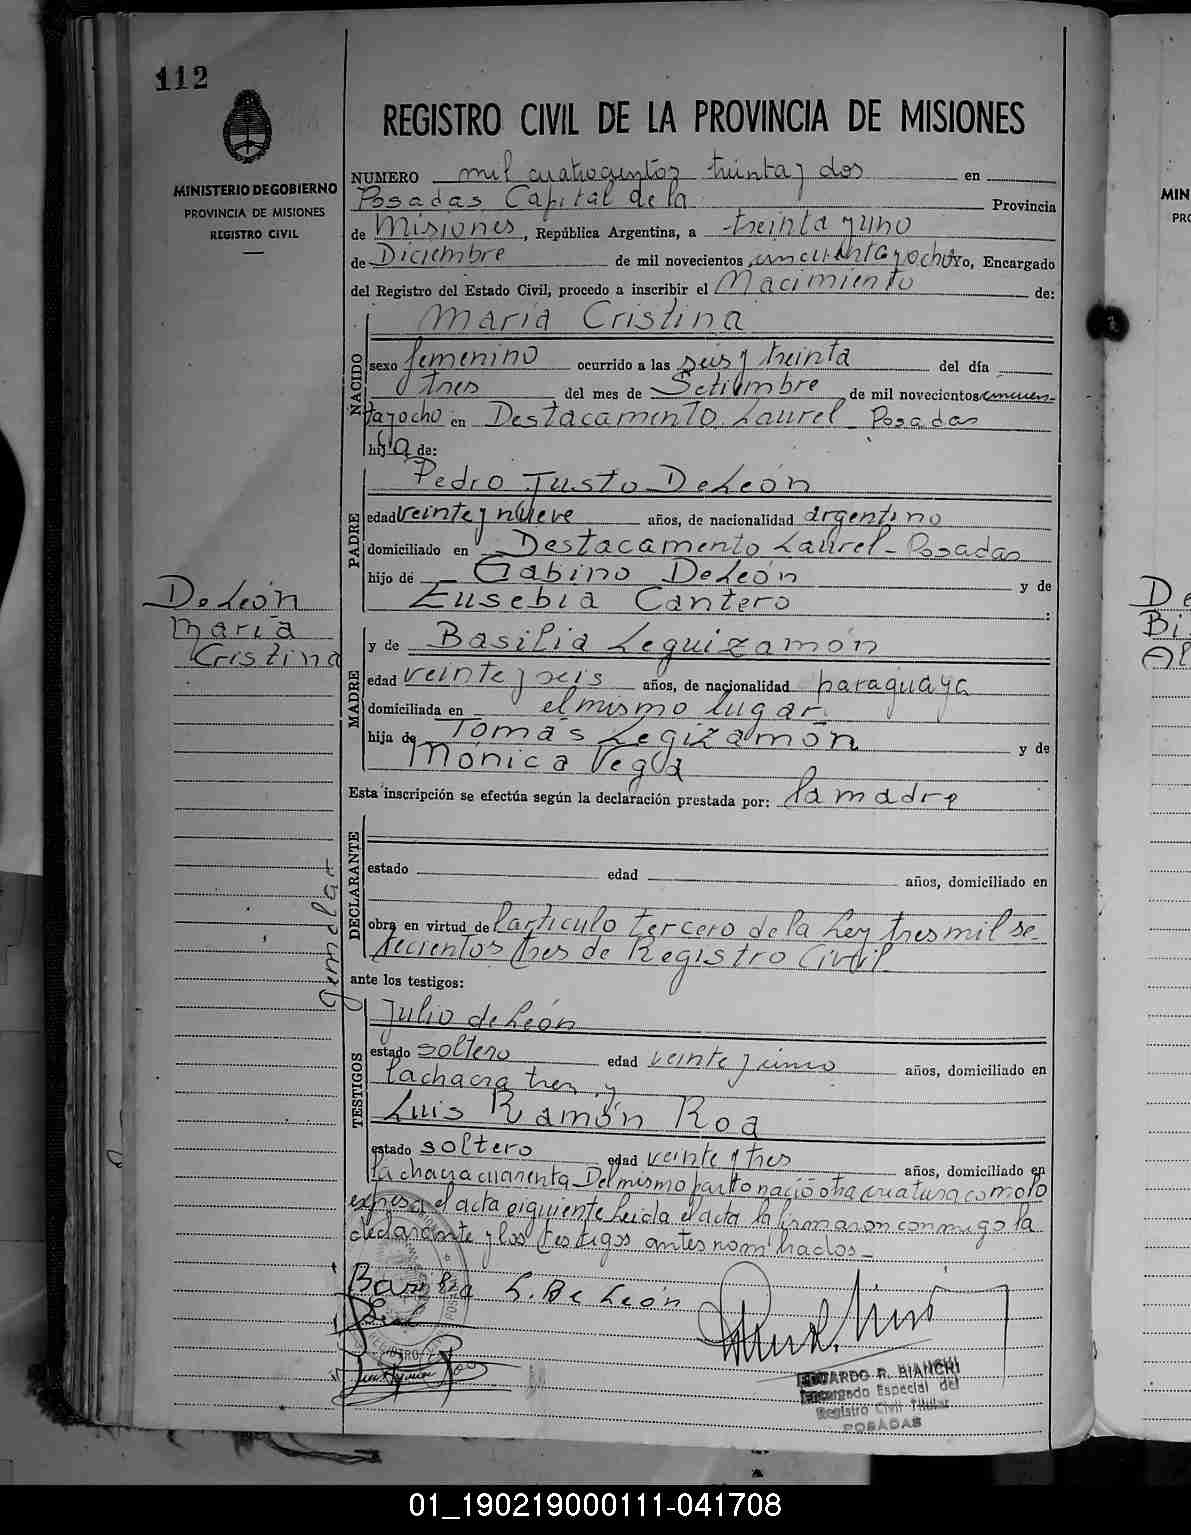 112
MINISTERIO DE GOBIERNO
PROVINCIA DE MISIONES
REGISTRO CIVIL
REGISTRO CIVIL DE LA PROVINCIA DE MISIONES
NUMERO mil cuatrocientos treinta y dos en
Posadas Capital de la Provincia
de Misiones, República Argentina, a treinta y uno
de Diciembre de mil novecientos cincuenta y ocho yo, Encargado
del Registro del Estado Civil, procedo a inscribir el Nacimiento de:
NACIDO
María Cristina
sexo femenino ocurrido a las seis y treinta del día
tres del mes de Setiembre de mil novecientos cincuen-
ta y ocho en Destacamento Laurel - Posadas
hija de:
PADRE
Pedro Justo De León
edad veinte y nueve años, de nacionalidad argentino
domiciliado en Destacamento Laurel - Posadas
hijo de Gabino De León y de
Eusebia Cantero :
De León
María
Cristina
MADRE
y de Basilia Leguizamón
edad veinte y seis años, de nacionalidad paraguaya
domiciliada en el mismo lugar
hija de Tomás Legizamón y de
Mónica Vega
Esta inscripción se efectúa según la declaración prestada por: la madre
DECLARANTE
estado edad años, domiciliado en
obra en virtud del artículo tercero de la Ley tres mil se-
tecientos tres de Registro Civil
Gemelar
ante los testigos:
TESTIGOS
Julio de León
estado soltero edad veinte y cinco años, domiciliado en
la chacra tres y
Luis Ramón Roa
estado soltero edad veinte y tres años, domiciliado en
la chacra cuarenta Del mismo parto nació otra criatura como lo
expresa el acta siguiente Leída el acta la firmaron conmigo la
declarante y los testigos antes nombrados -
Basilia L. De León
EDUARDO R. BIANCHI
Encargado Especial del
Registro Civil Titular
POSADAS
MIN
PRO
De
Bi
Al
01_190219000111-041708